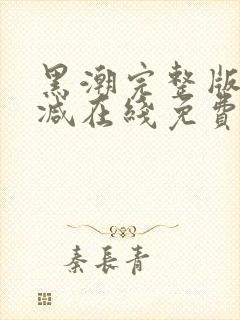 黑潮完整版
减在綫免費
秦長青